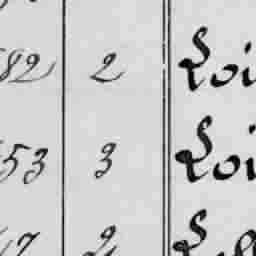 82 2 Loi
53 3 Loi
7 2